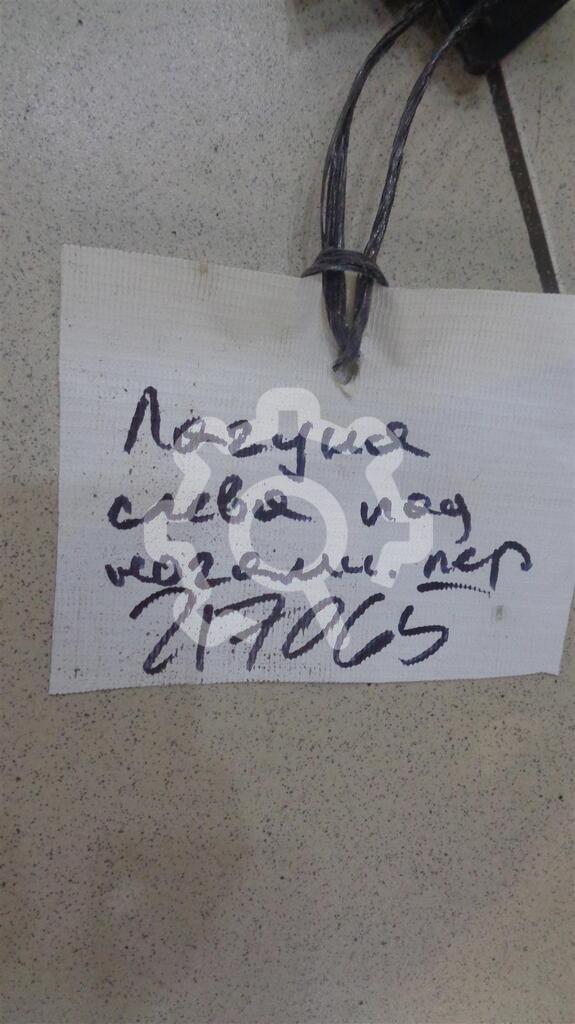 Лагуна
слева под
ногами пер
217065